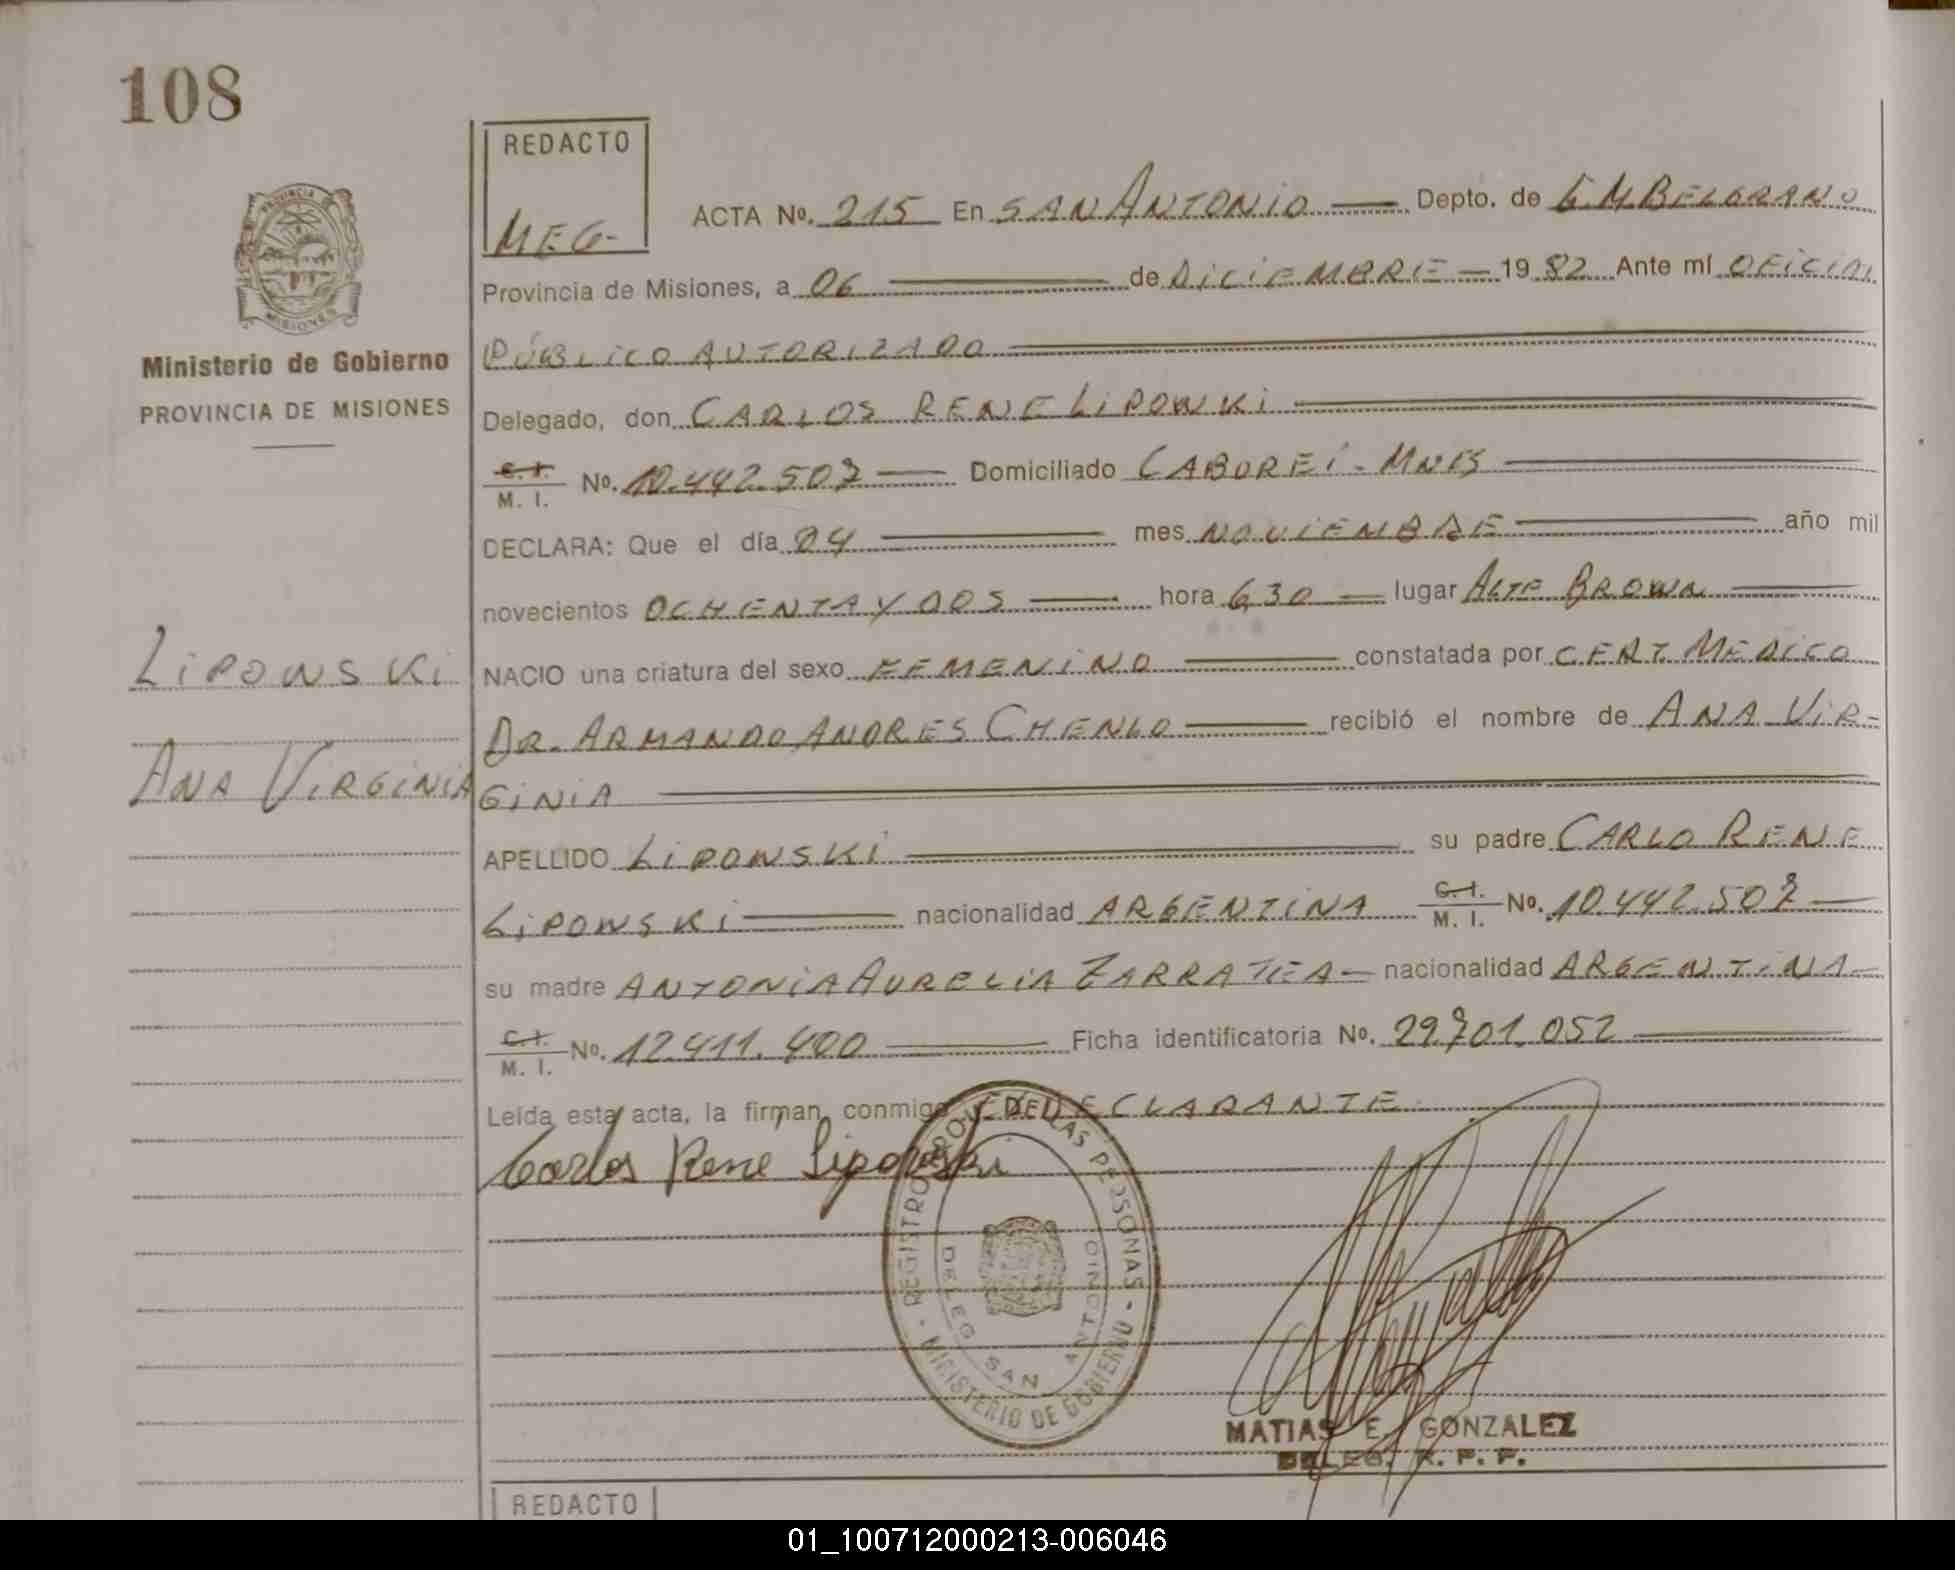 108
PROVINCIA
MISIONES
Ministerio de Gobierno
PROVINCIA DE MISIONES
LiPOWSKi
ANA VIRGiNiA
REDACTO
MEG-
ACTA Nº. 215 En SAN ANTONiO Depto. de G.M.BELGRANO
Provincia de Misiones, a 06 de DiCiEMBRE 19 82 Ante mí OFiCiAL
PÚBLiCO AUTORIZADO
Delegado, don CARLOS RENE LiPOWKi
C. I. M. I. No. 10.442.507 Domiciliado CABUREi - MNES
DECLARA: Que el día 04 mes NOViEMBRE año mil
novecientos OCHENTA Y DOS hora 6,30 lugar ALTE BROWN
NACIO una criatura del sexo FEMENiNO constatada por CERT. MEDiCO
DR. ARMANDO ANDRES CHENLO recibió el nombre de ANA ViR-
GiNiA
APELLIDO LiPOWSKi su padre CARLO RENE
LiPOWSKi nacionalidad ARGENTiNA C. I. M. I. No. 10.442.507
su madre ANTONiA AURELiA ZARRATEA nacionalidad ARGENTiNA
C. I. M. I. No. 12.411.400 Ficha identificatoria No. 29.701.052
Leída esta acta, la firman conmigo EL DECLARANTE
Carlos Rene Lipowski
REGISTRO PROV. DE LAS PERSONAS - MINISTERIO DE GOBIERNO -
DELEG. SAN ANTONIO
MATIAS E. GONZALEZ
DELEG. R. P. P.
REDACTO
01_100712000213-006046